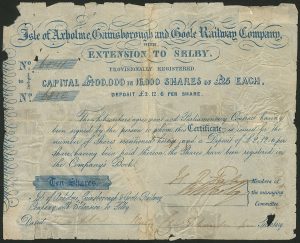 Isle of Axholme, Gainsborough and Goole Railway Company,
WITH
EXTENSION TO SELBY.
PROVISIONALLY REGISTERED
CAPITAL £400,000 IN 16,000 SHARES OF £25 EACH,
DEPOSIT £2. 12. 6 PER SHARE.
No
No
The Subscribers agreement and Parliamentary Contract having
been signed by the person to whom this Certificate is issued for the
number of Shares mentioned hereof and a Deposit of £2. 12. 6 per
Share having been paid thereon the Shares have been registered in
the Company's Book.
Ten Shares
Isle of Axholme, Gainsborough & Goole Railway
Company with Extension to Selby
Members of
the managing
Committee
Dated
Secretary